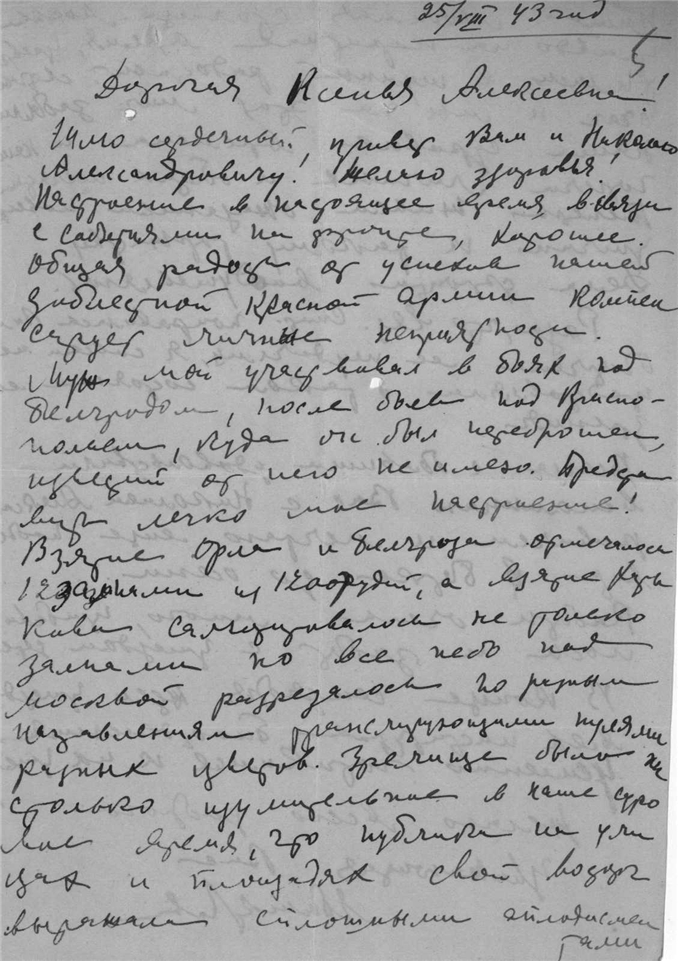 25/VIII 43 год
Дорогая Ксенья Алексеевна!
Шлю сердечный привет Вам и Николаю
Александровичу! Желаю здоровья!
Настроение в настоящее время в связи
с событиями на фронте, хорошее.
Общая радость от успехов нашей
доблестной Красной армии
личные неприятности.
Муж мой участвовал в боях под
Белгородом, после боев под Красно-
польем, куда он был переброшен,
известий от него не имею. Предста
вить легко мое настроение!
Взятие Орла и Белгорода отмечалось
12 залпами из 120 орудий, а взятие Харь
кова салютовалось не только
залпами но все небо над
Москвой разрезалось по разным
направлениям трассирующими пулями
разных цветов. Зрелище было на
столько изумительное в наше суро
вое время, что публика на ули
цах и площадях свой восторг
выражала сплошными аплодисмен
тами